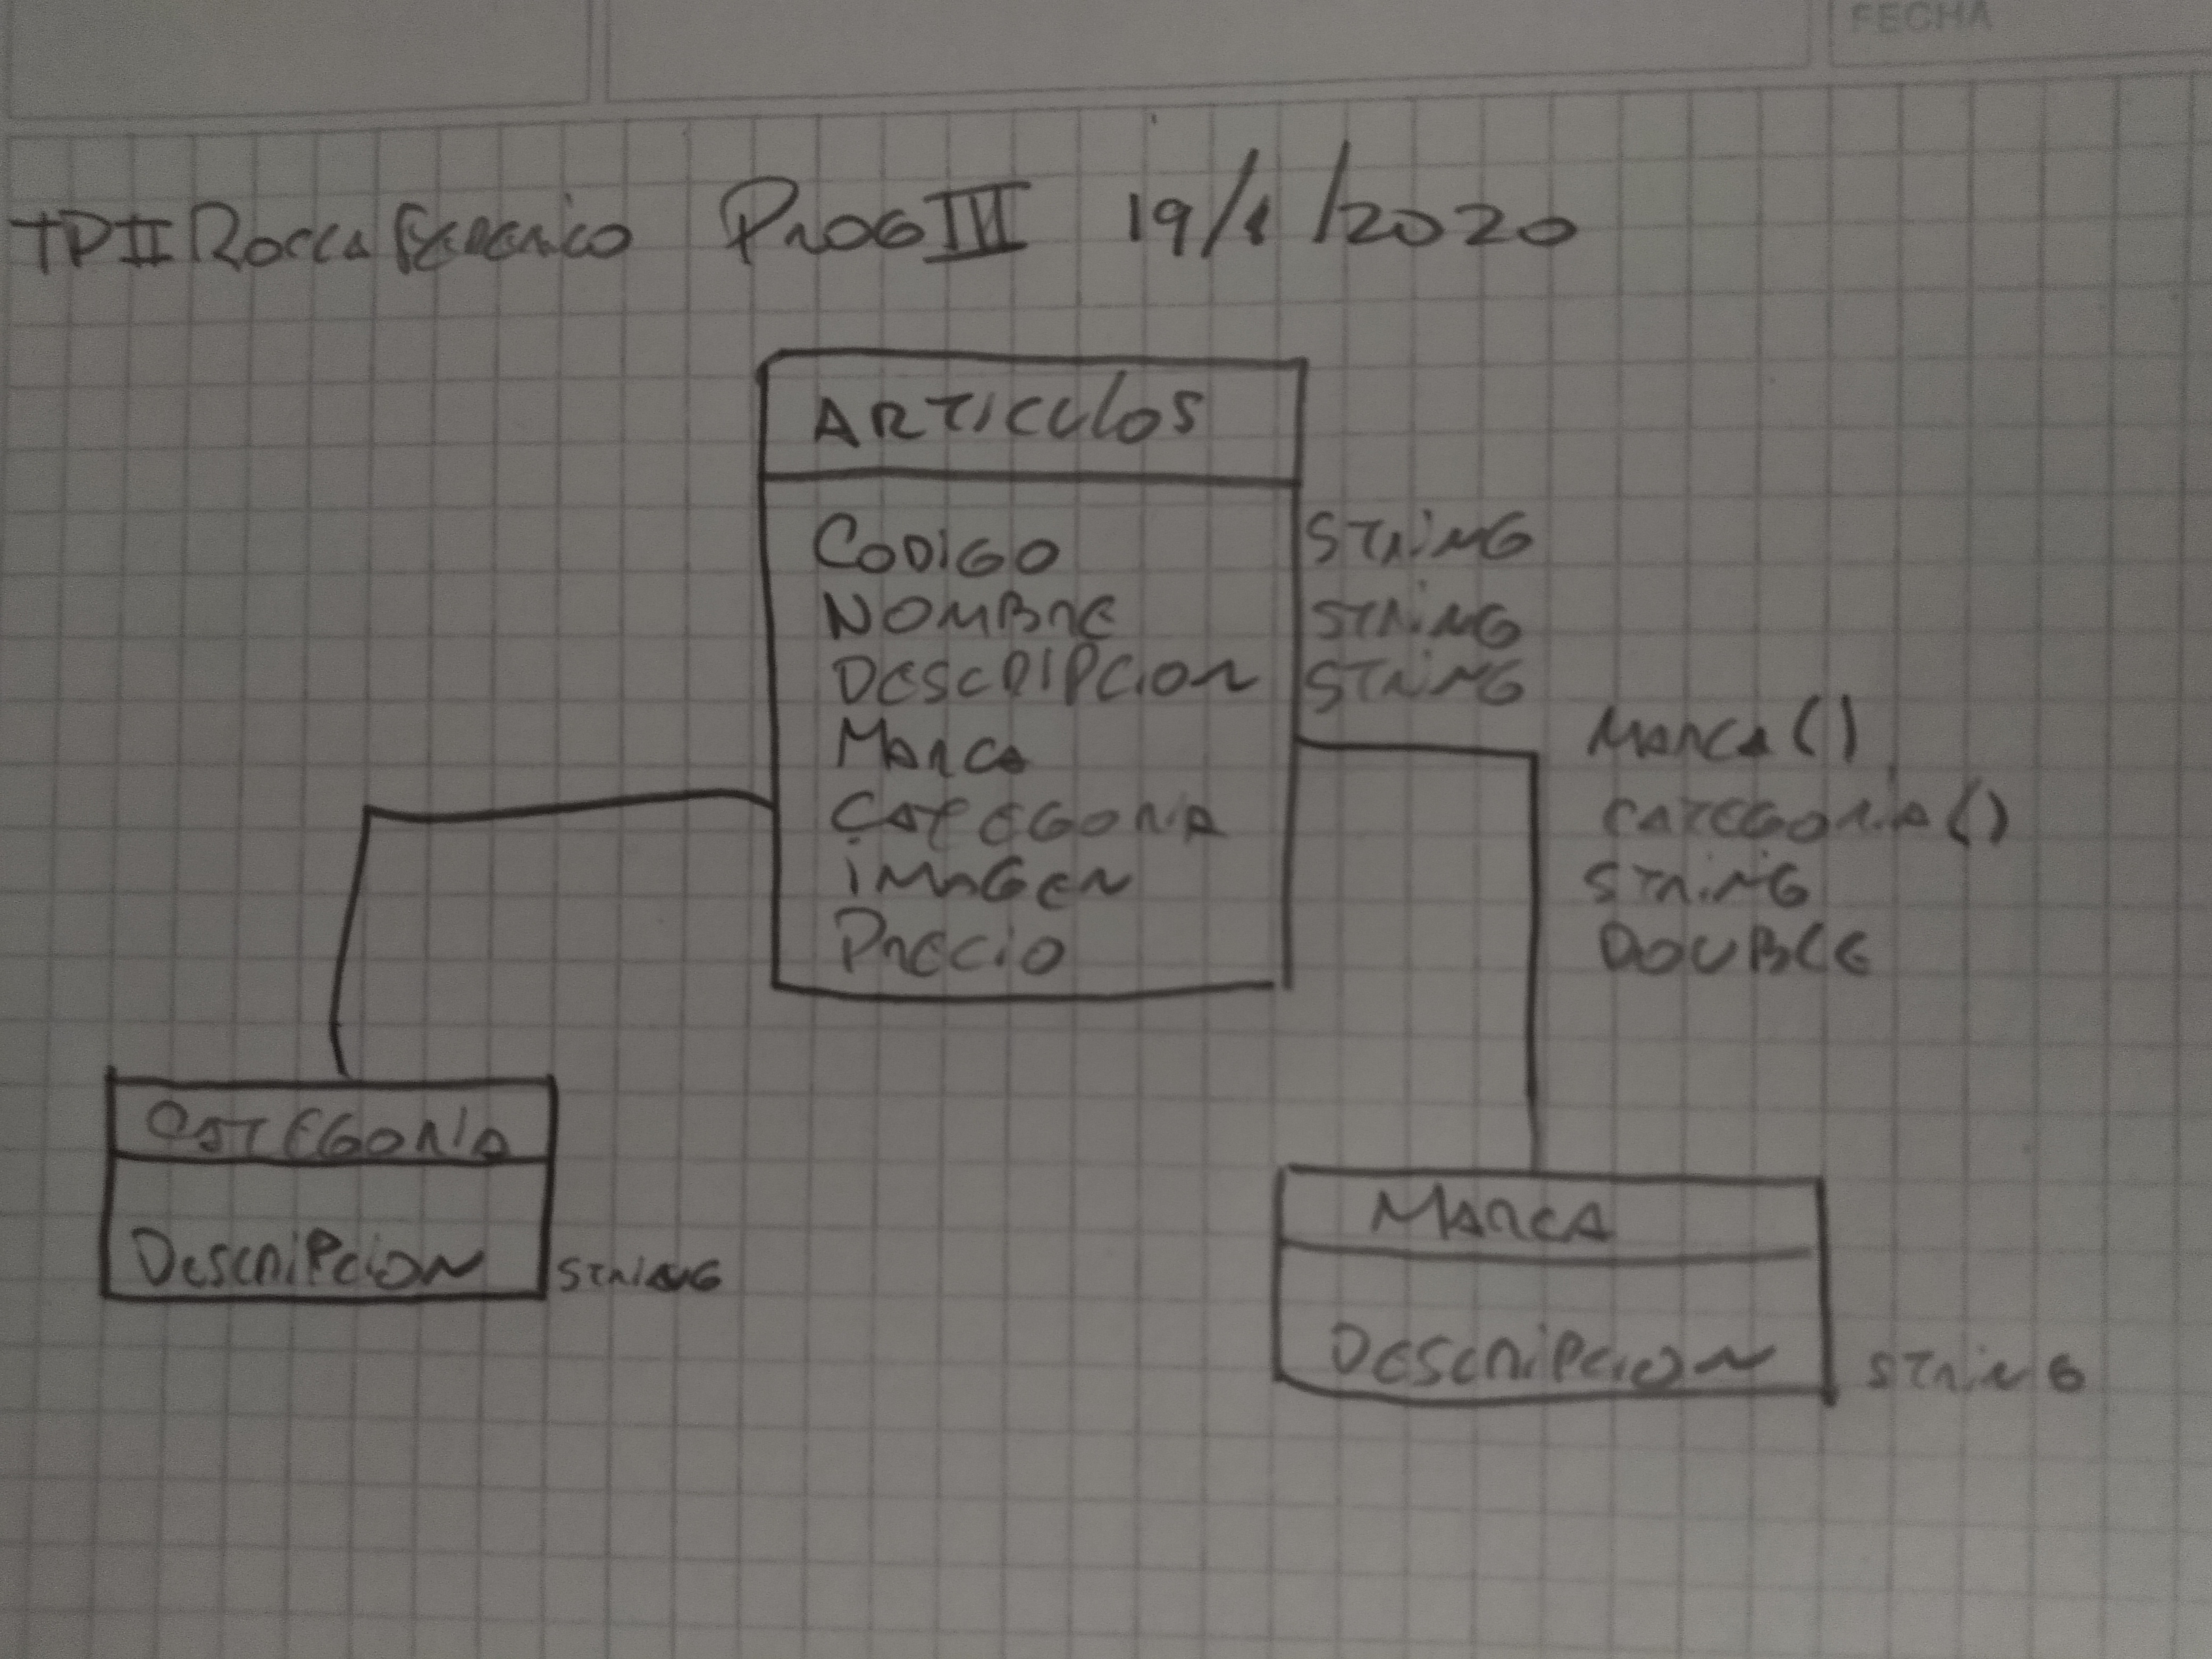 FECHA
TP II Rocca Federico Prog III 19/1/2020
ARTICULOS
CODIGO STRING
NOMBRE STRING
DESCRIPCION STRING
MARCA MARCA ()
CATEGORIA CATEGORIA ()
IMAGEN STRING
PRECIO DOUBLE
CATEGORIA
DESCRIPCION STRING
MARCA
DESCRIPCION STRING